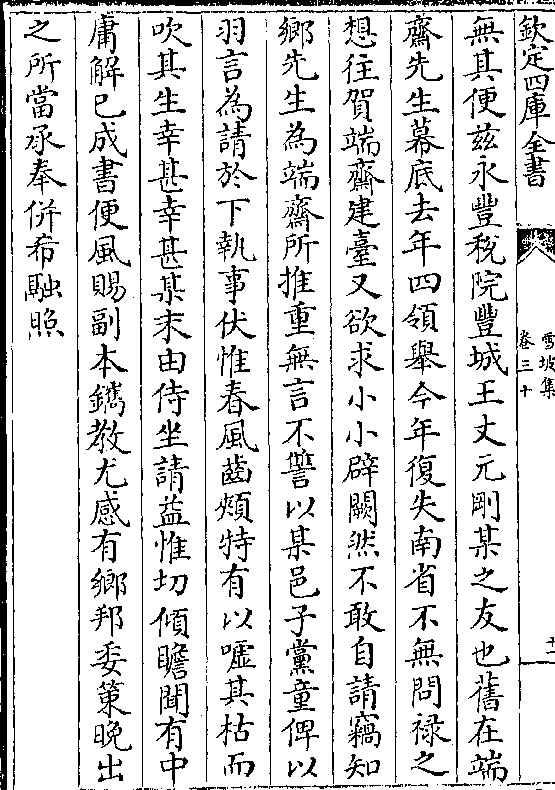 欽定四庫全書
雪坡集
卷三十
十一
無其便兹永豐稅院豐城王丈元剛某之友也舊在端
齋先生幕底去年四領舉今年復失南省不無問祿之
想往賀端齋建臺又欲求小小辟闕然不敢自請竊知
鄉先生為端齋所推重無言不讐以某邑子黨童俾以
羽言為請於下執事伏惟春風齒頰特有以噓其枯而
吹其生幸甚幸甚某末由侍坐請益惟切傾瞻間有中
庸解已成書便風賜副本鐫教尤感有鄉邦委策晚出
之所當承奉併布融照